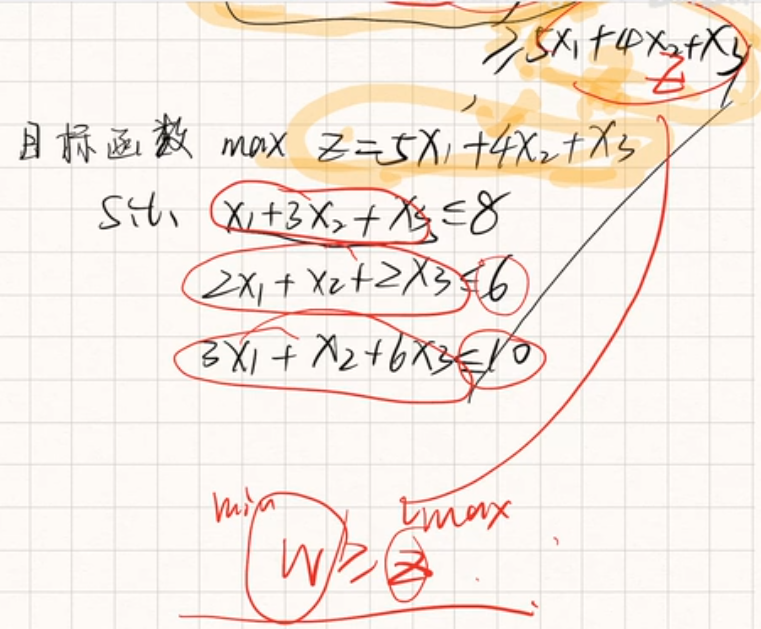 ≥5x₁+4x₂+x₃
z
目标函数 max z=5x₁+4x₂+x₃
s.t. x₁+3x₂+x₃≤8
2x₁+x₂+2x₃≤6
3x₁+x₂+6x₃≤10
min max
W≥z